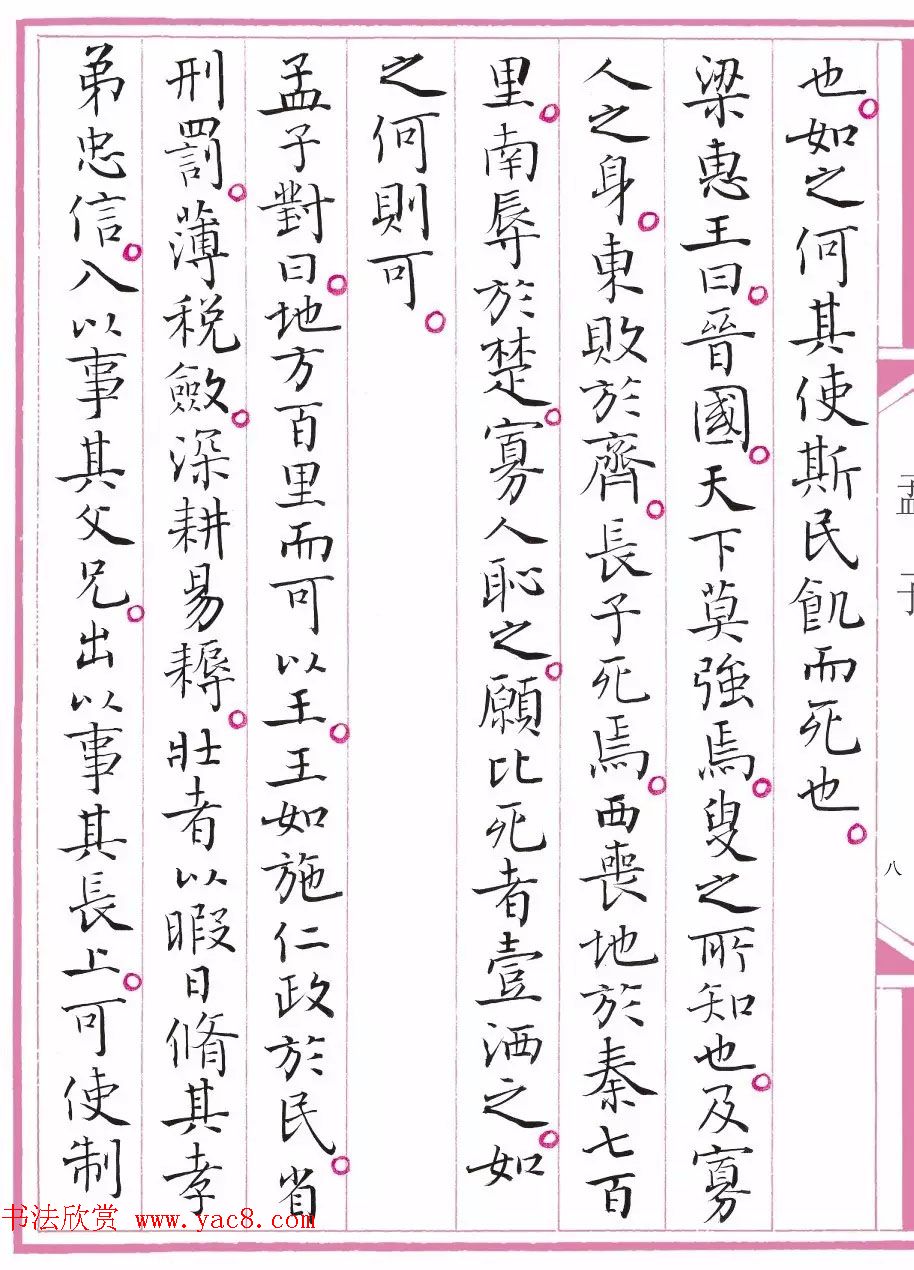 也。如之何其使斯民飢而死也。
梁惠王曰。晉國。天下莫強焉。叟之所知也。及寡
人之身。東敗於齊。長子死焉。西喪地於秦七百
里。南辱於楚。寡人恥之。願比死者壹洒之。如
之何則可。
孟子對曰。地方百里而可以王。王如施仁政於民。省
刑罰。薄税斂。深耕易耨。壯者以暇日脩其孝
弟忠信。入以事其父兄。出以事其長上。可使制
孟子
八
书法欣赏 www.yac8.com